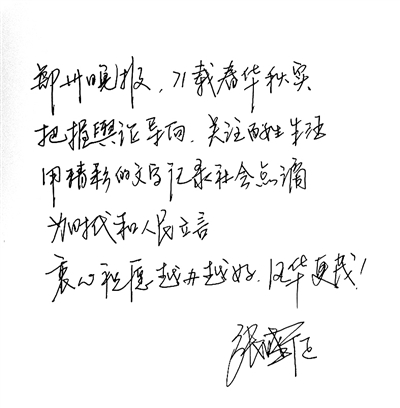 郑州晚报，71载春华秋实
把握舆论导向、关注百姓生活
用精彩的文字记录社会点滴
为时代和人民立言
衷心祝愿越办越好、风华更茂！